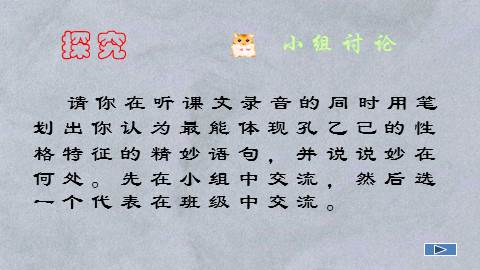 探究
小组讨论
请你在听课文录音的同时用笔
划出你认为最能体现孔乙己的性
格特征的精妙语句，并说说妙在
何处。先在小组中交流，然后选
一个代表在班级中交流。